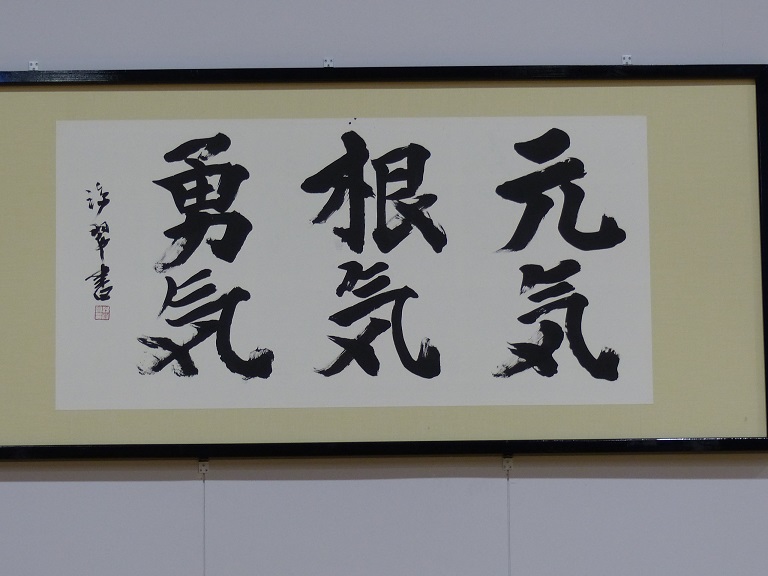 元気
根気
勇気
翠書